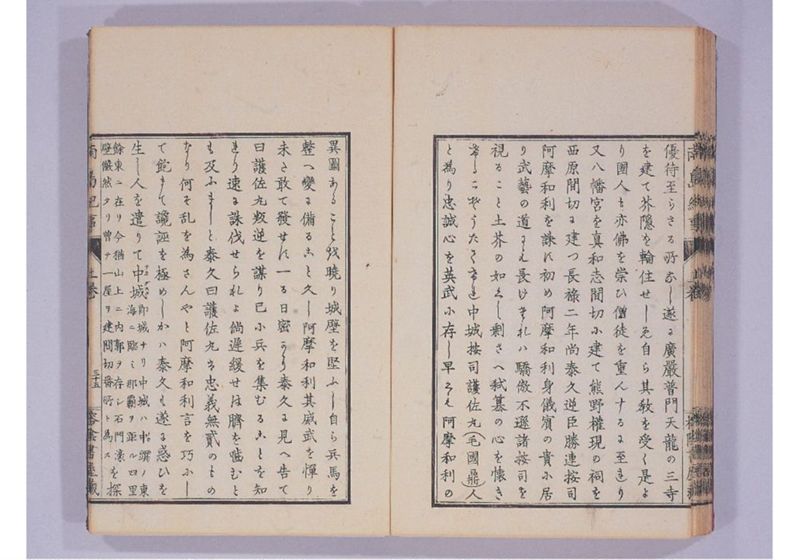 優待至らさる所なし遂に廣嚴普門天龍の三寺
を建て芥隠を輪住せしめ自ら其敎を受く是よ
り國人も亦佛を崇ひ僧徒を重んするに至れり
又八幡宮を真和志間切に建て熊野權現の祠を
西原間切に建つ長祿二年尚泰久逆臣勝連按司
阿摩和利を誅す初め阿摩和利身儀賓の貴に居
り武藝の道に長けけれハ驕傲不遜諸按司を
視ること土芥の如くし剰さへ弑簒の心を懐き
中城按司護佐丸(毛國鼎)人
と為り忠誠心を英武に存し早くより阿摩和利の
異圖あることを暁り城壁を堅ふし自ら兵馬を
整へ變に備ること久し阿摩和利其威武を憚り
未た敢て發せす一日密かに泰久に見へ告て
曰護佐丸叛逆を謀り已に兵を集むることを知
れり速に誅伐せられよ倘遅緩せは臍を噬むと
も及ふましと泰久曰護佐丸は忠義無貳のもの
なり何そ乱を為さんやと阿摩和利言を巧ふし
て飽まて讒誣を極めしかハ泰久も遂に惑ひを
生し人を遣りて中城 即城ナリ中城ハ中頭ノ東
海ニ臨ミ那覇ヲ距ル四里
餘東ニ在リ今猶山上ニ内郭ヲ存シ石門濠
壁儼然タリ曾テ一屋ヲ建間切番所ト為ス を探
南島紀事 上巻 三十五